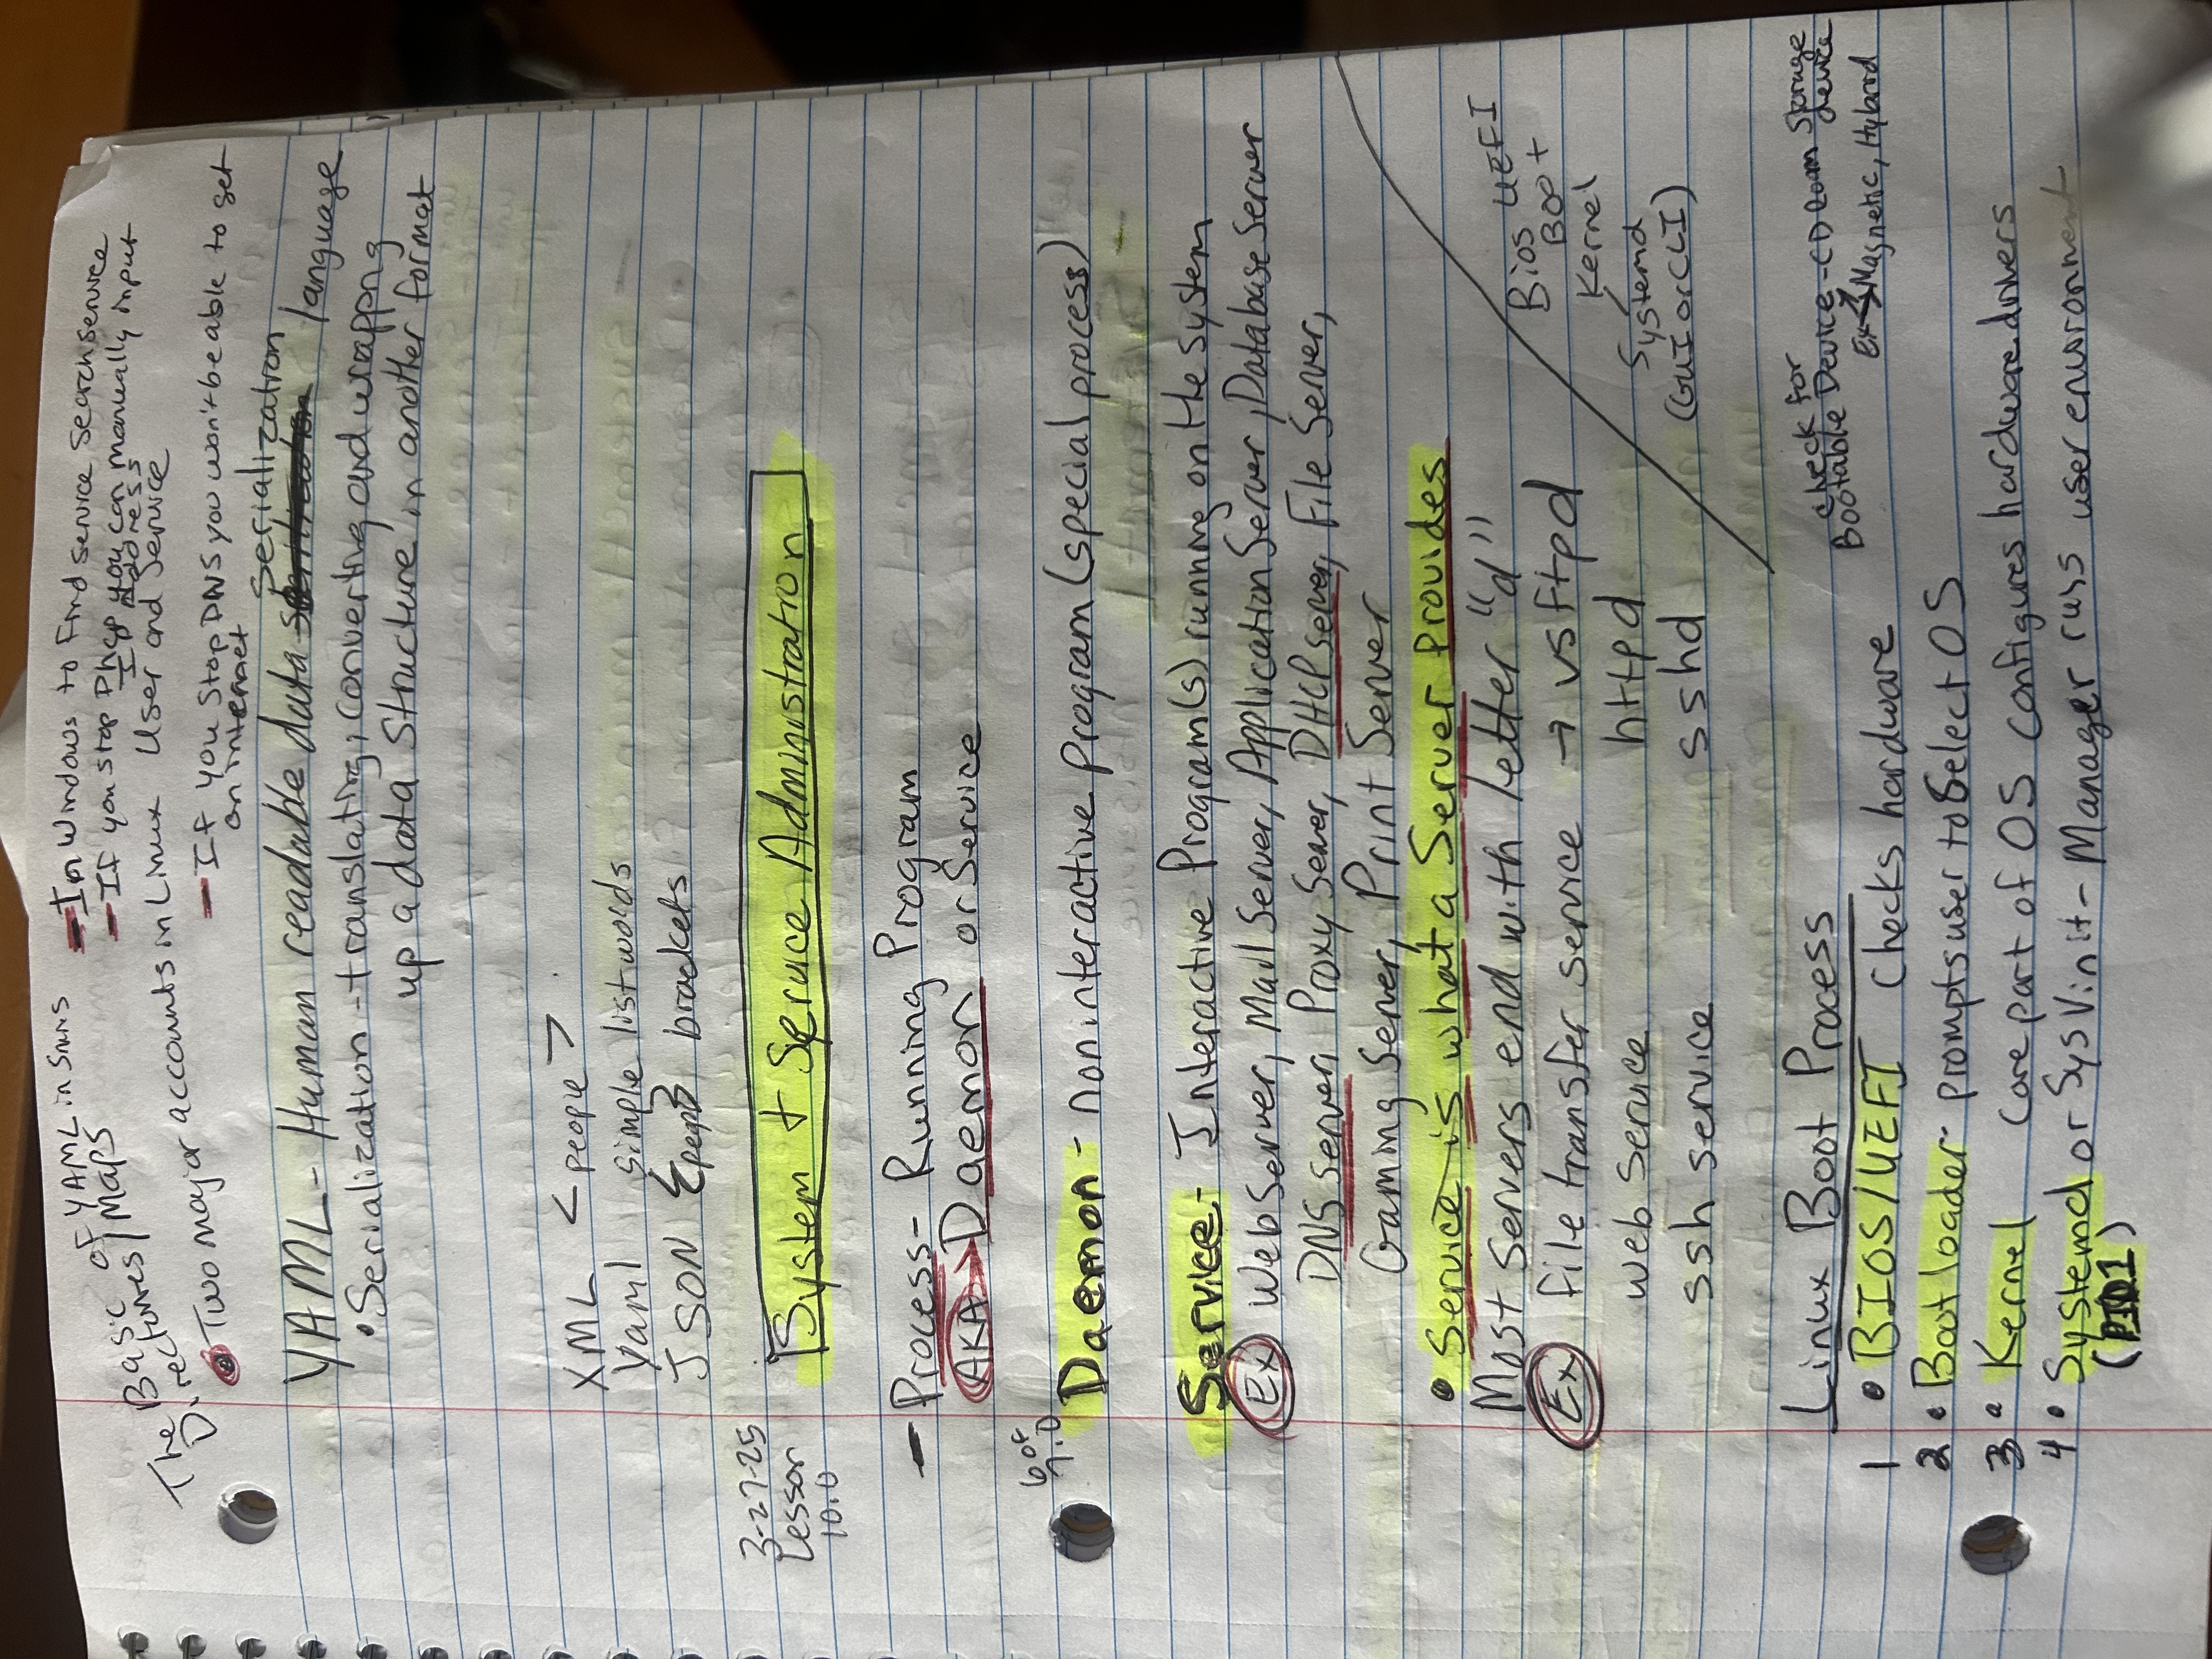 The Basic of YAML in 5mins
Directories/Maps
- In Windows to Find service search service
- If you stop Dhcp you can manually input
IP Address
• Two major accounts in Linux User and Service
- If you stop DNS you won't be able to get
on internet
serialization
YAML - Human readable data language
• Serialization - translating, converting and wrapping
up a data structure in another format
XML < people >
Yaml simple list words
JSON {peop} brackets
3-27-25
Lesson
10.0
System + Service Administration
- Process - Running Program
AKA → Daemon or Service
6 of
7.0
Daemon - noninteractive program (special process)
Service - Interactive Program(s) running on the system
Ex Web Server, Mail Server, Application Server, Database Server
DNS server, Proxy Server, DHCP server, File Server,
Gaming Server, Print Server
• Service is what a Server provides
Most Servers end with letter "d"
Ex file transfer service → vsftpd
web service httpd
ssh service sshd
Bios UEFI
Boot
Kernel
Systemd
(GUI or CLI)
Linux Boot Process
check for
Bootable Device - CD Room Storage
device
Ex → Magnetic, Hybrid
1 • BIOS/UEFI checks hardware
2 • Boot loader - prompts user to select OS
3 • Kernel core part of OS configures hardware drivers
4 • Systemd or SysVinit - Manager runs user environment
(PID1)